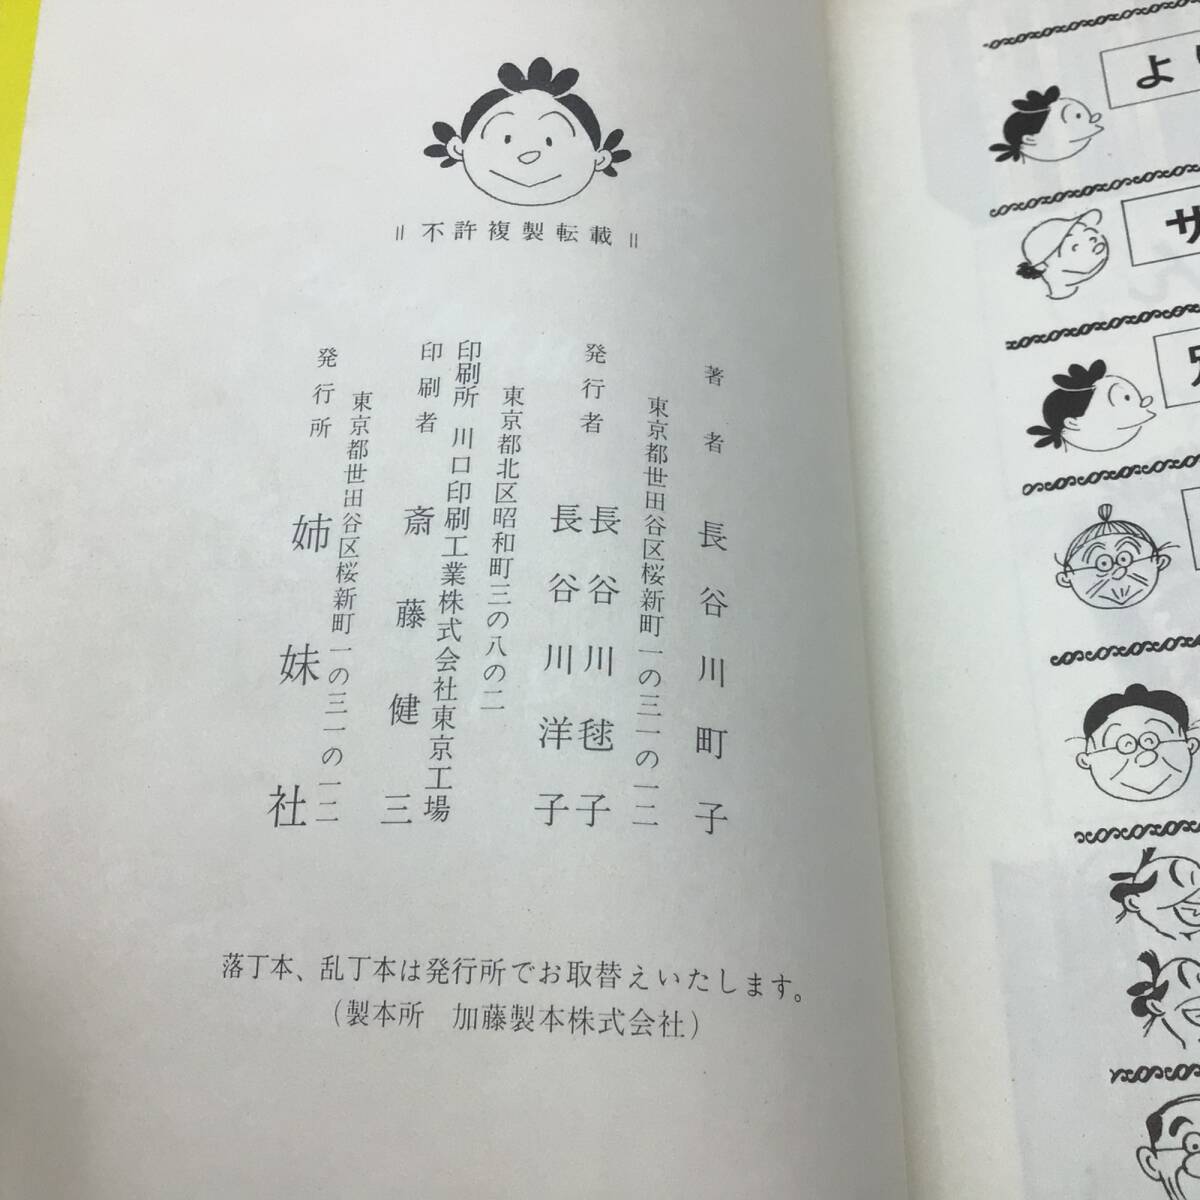 =不許複製転載=
著者 長谷川町子
東京都世田谷区桜新町一の三一の一二
発行者 長谷川毬子
長谷川洋子
東京都北区昭和町三の八の二
印刷所 川口印刷工業株式会社東京工場
印刷者 斎藤健三
東京都世田谷区桜新町一の三一の一二
発行所 姉妹社
落丁本、乱丁本は発行所でお取替えいたします。
(製本所 加藤製本株式会社)
よ
サ